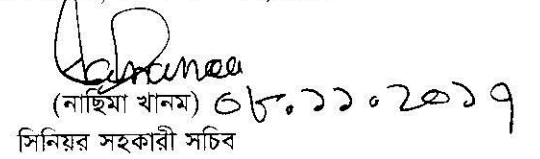 (নাছিমা খানম) ০৮.১১.২০১৭
সিনিয়র সহকারী সচিব